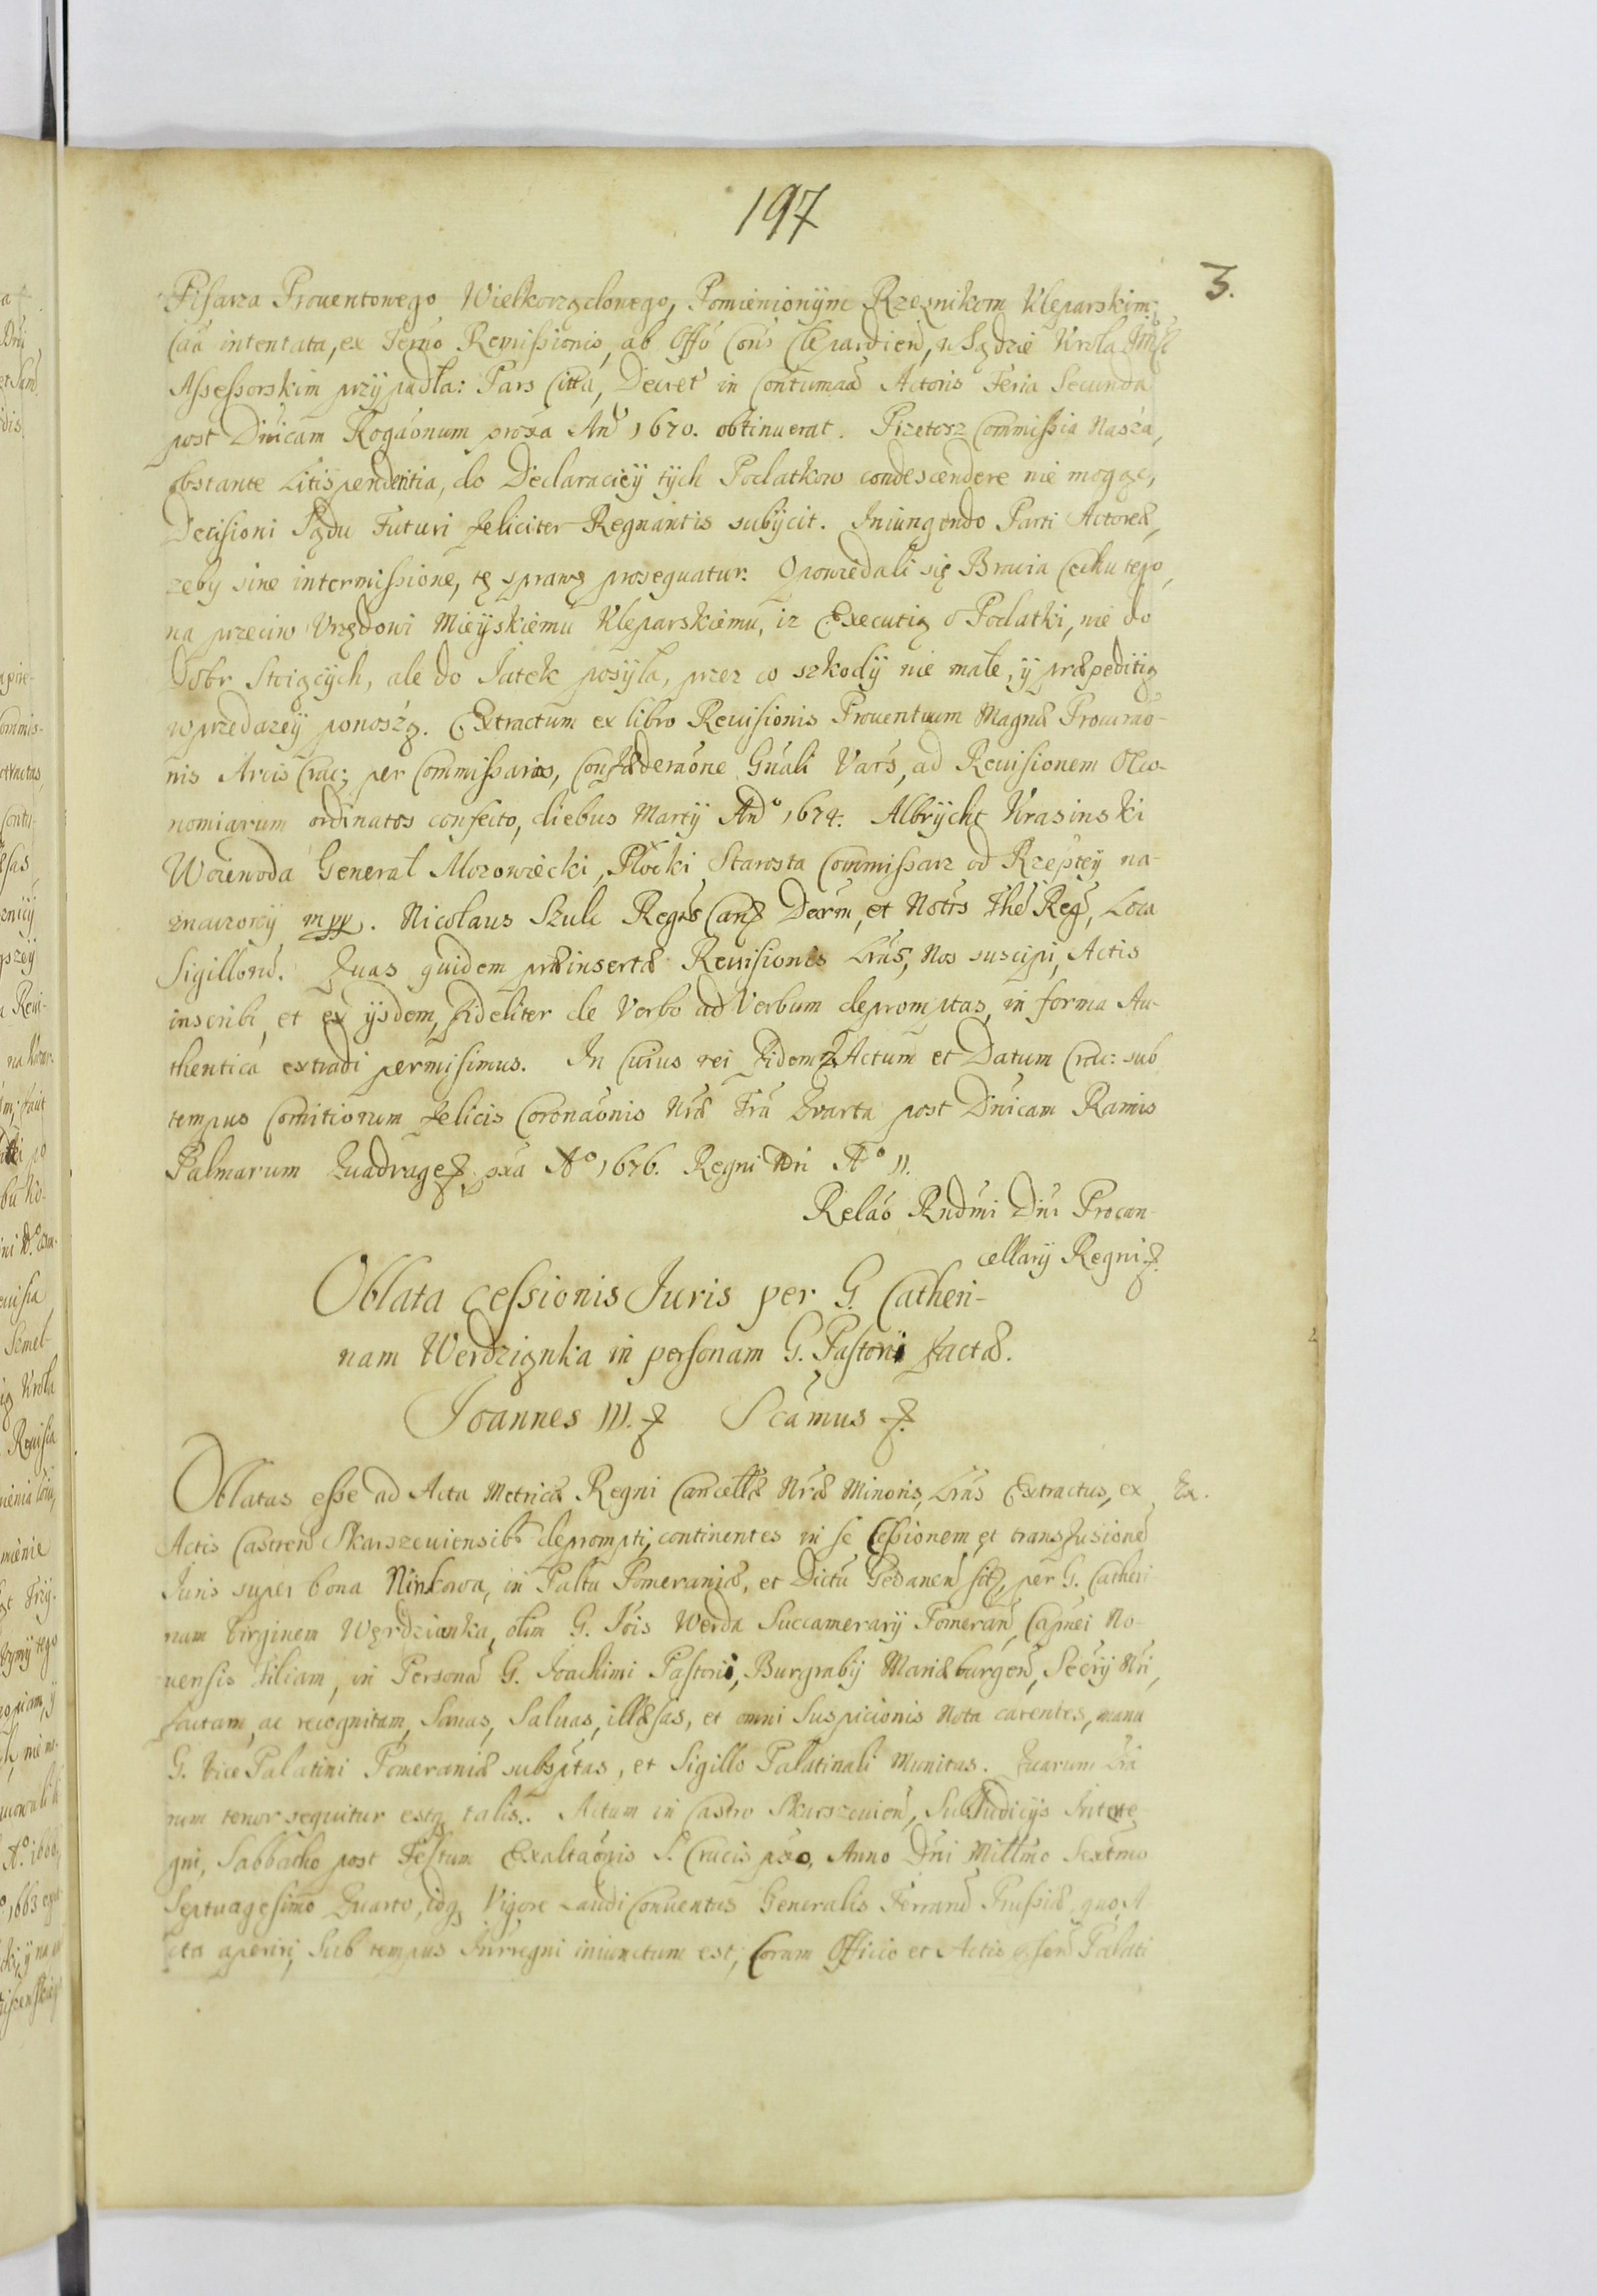 197
3.
Pisarza Prouentowego Wielkorządowego, Pomienionym Rzeznikom Kleparskim,
Caã intentata, ex Termo Remissionis, ab Offo Cons Clepardien, w Sądzie Krola Jmści
Assessorskim przypadła: Pars Citta, Decret in Contumaam Actoris Feria Secunda
post Dnicam Rogaonum proxa Ano 1670. obtinuerat. Przetosz Commissia Nasza,
obstante Litispendentia, do Declaraciey tych Podatkow condescendere nie mogąc,
Decisioni Sądu Futuri feliciter Regnantis subijcit. Iniungendo Parti Actoreæ,
zeby sine intermissione, tę sprawę prosequatur. Opowiedali się Bracia Cechu tego,
na przeciw Vrzędowi Mieyskiemu Kleparskiemu, iz Executią o Podatki, nie do
Dobr Stoiących, ale do Jatek posyła, przez co szkody nie małe, y præpeditią
w przedazey ponoszą. Extractum ex libro Reuisionis Prouentuum Magnæ Procurao-
nis Arcis Crac; per Commissarios, Confæderaone Gnali Vars, ad Reuisionem Oeco-
nomiarum ordinatos confecto, diebus Martij Ano 1674. Albrycht Krasinski
Woiewoda General Mozowiecki, Płocki Starosta Commissarz od Rzeptey na-
znaczony mpp. Nicolaus Szulc Regns Canę Decrm, et Notrs Thē Reg, Loca
Sigillorũ. Quas quidem præinsertæ Reuisionis Lras, Nos suscipi, Actis
inscribi, et ex ijsdem, fideliter de Verbo ad Verbum depromptas, in forma Au-
thentica extradi permisimus. In Cuius rei Fidem Actum et Datum Crac: sub
tempus Comitiorum felicis Coronaonis Nræ Fria Quarta post Dnicam Ramis
Palmarum Quadrages pxa Ao 1676. Regni Nri Ao II.
Relao Rndmi Dni Procan-
cellarij Regni
Oblata cessionis Iuris per G. Catheri-
nam Werdzianka in personam G. Pastorii factæ.
Joannes III. Scamus
Oblatas esse ad Acta Metricæ Regni Cancellæ Nræ Minoris, Lras Extractus, ex
Ex.
Actis Castren Skarszeuiensibs deprompti, continentes in se Cessionem et transfusionẽ
Iuris super bona Ninkowa, in Paltu Pomeraniæ, et Dictu Gedanen sit, per G. Catheri
nam Virginem Werdzianka, olim G. Iois Werda Succamerarij Pomeran, Capnei No-
uensis filiam, in Personã G. Ioachimi Pastorii, Burgrabij Mariæburgen, Secrij Nri,
factam, ac recognitam, Sanas, Saluas, illæsas, et omni Suspicionis Nota carentes, manu
G. Vice Palatini Pomeraniæ subsptas, et Sigillo Palatinali Munitas. Quarum Lra
rum tenor sequitur estq talis.. Actum in Castro Skarszeuien, Sub Iudicijs Interre-
gni, Sabbatho post Festum Exaltaonis S. Crucis pxo, Anno Dni Millmo Sextmo
Septuagesimo Quarto, idq Vigore Laudi Conuentus Generalis Terrarũ Prussiæ, quo A
cta aperiri, Sub tempus Intrregni iniunctum est, Coram Officio et Actis Palati